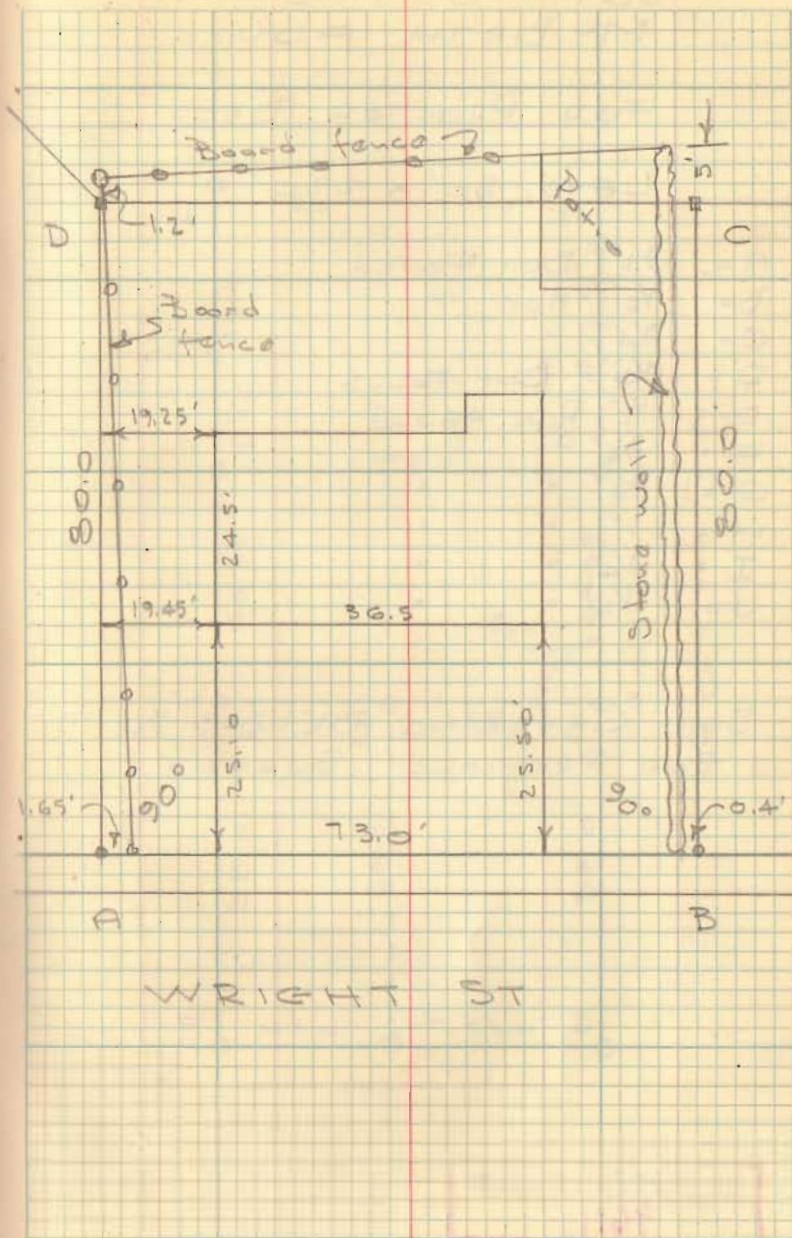 Board fence
5'
Patio
1.2'
D
C
Board
fence
19.25'
80.0
24.5'
Stone wall
80.0
19.45'
36.5
25.10
25.50'
90°
90°
1.65'
73.0'
0.4'
A
B
WRIGHT ST